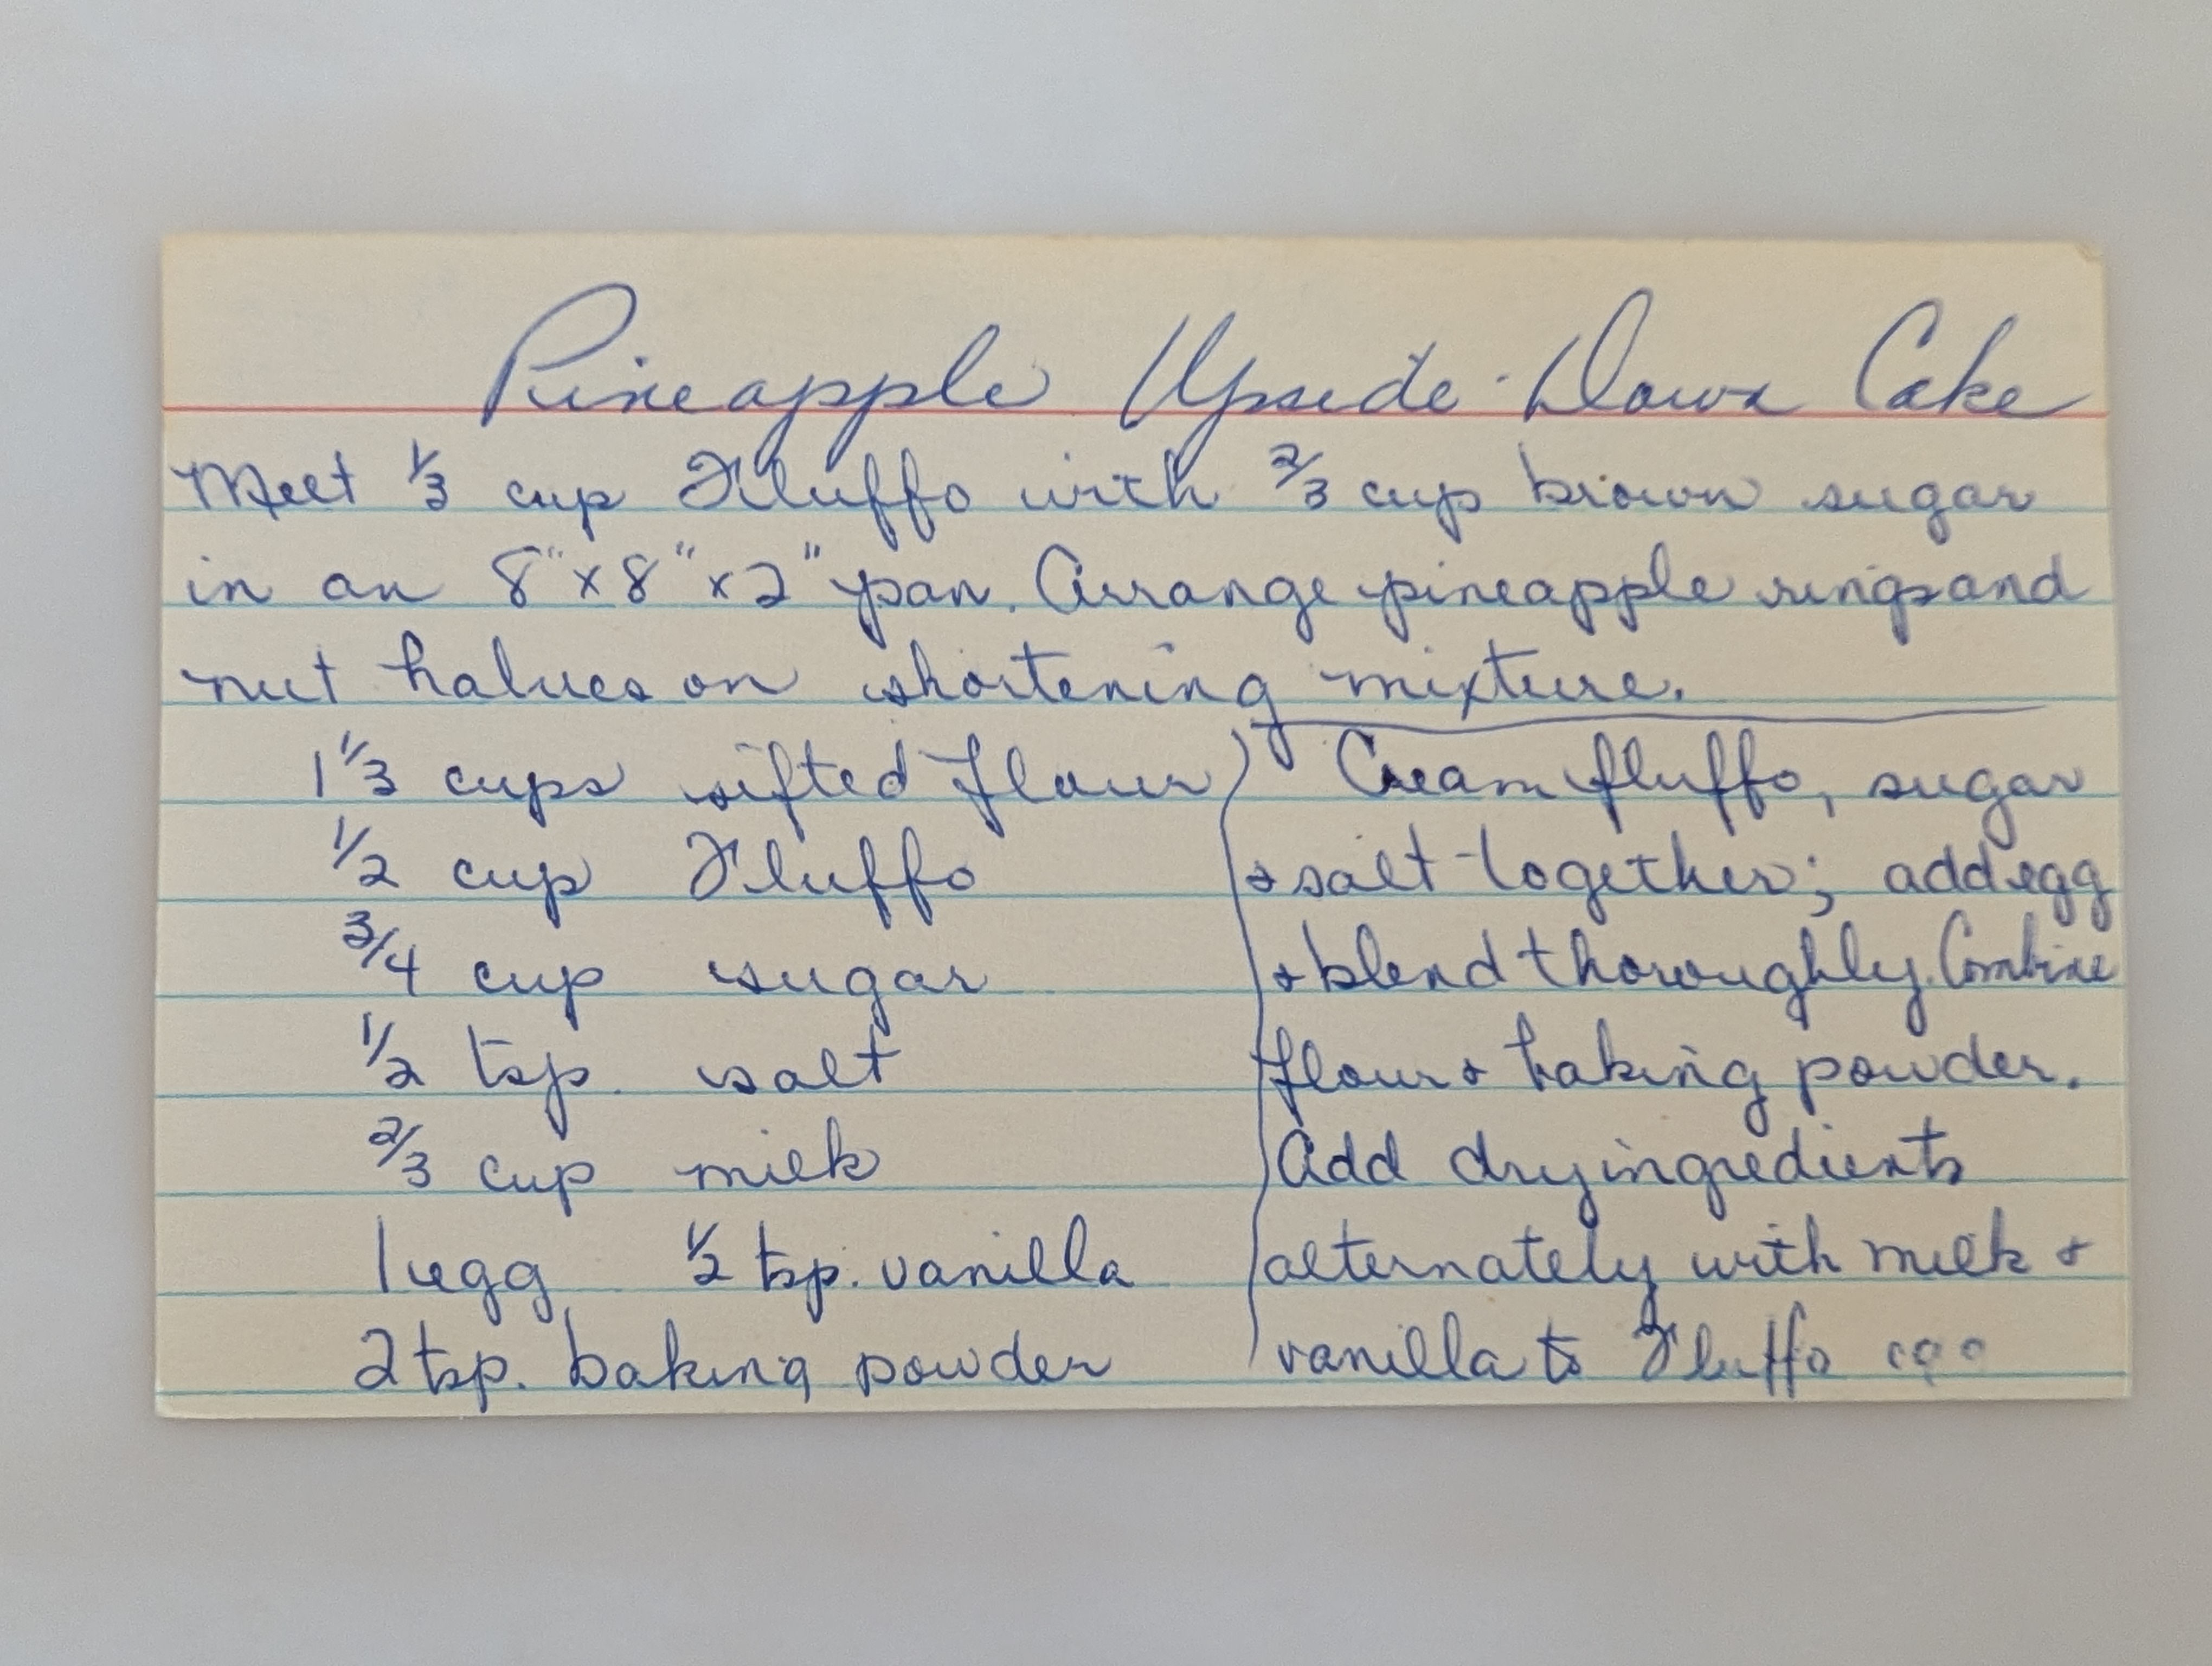 Pineapple Upside-Down Cake
Melt 1/3 cup Fluffo with 2/3 cup brown sugar
in an 8" x 8" x 2" pan. Arrange pineapple rings and
nut halves on shortening mixture.
1 1/3 cups sifted flour
1/2 cup Fluffo
3/4 cup sugar
1/2 tsp. salt
2/3 cup milk
1 egg 1/2 tsp. vanilla
2 tsp. baking powder
Cream fluffo, sugar
& salt together; add egg
& blend thoroughly. Combine
flour & baking powder.
Add dry ingredients
alternately with milk &
vanilla to Fluffo